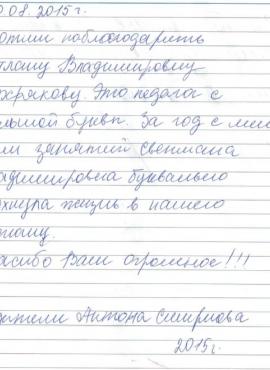 0.08.2015г.
отим поблагодарить
тлану Владимировну
Это педагог с
льшой букв. За год с
ли занятий Светлана
адимировна буквально
охнула жизнь в нашего

асибо Вам огромное!!!
дители Антона Смирнова
2015г.